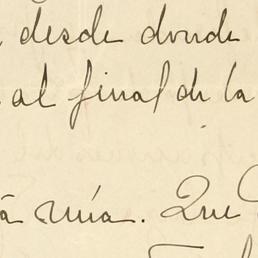 desde donde
al final de la
mía. Que